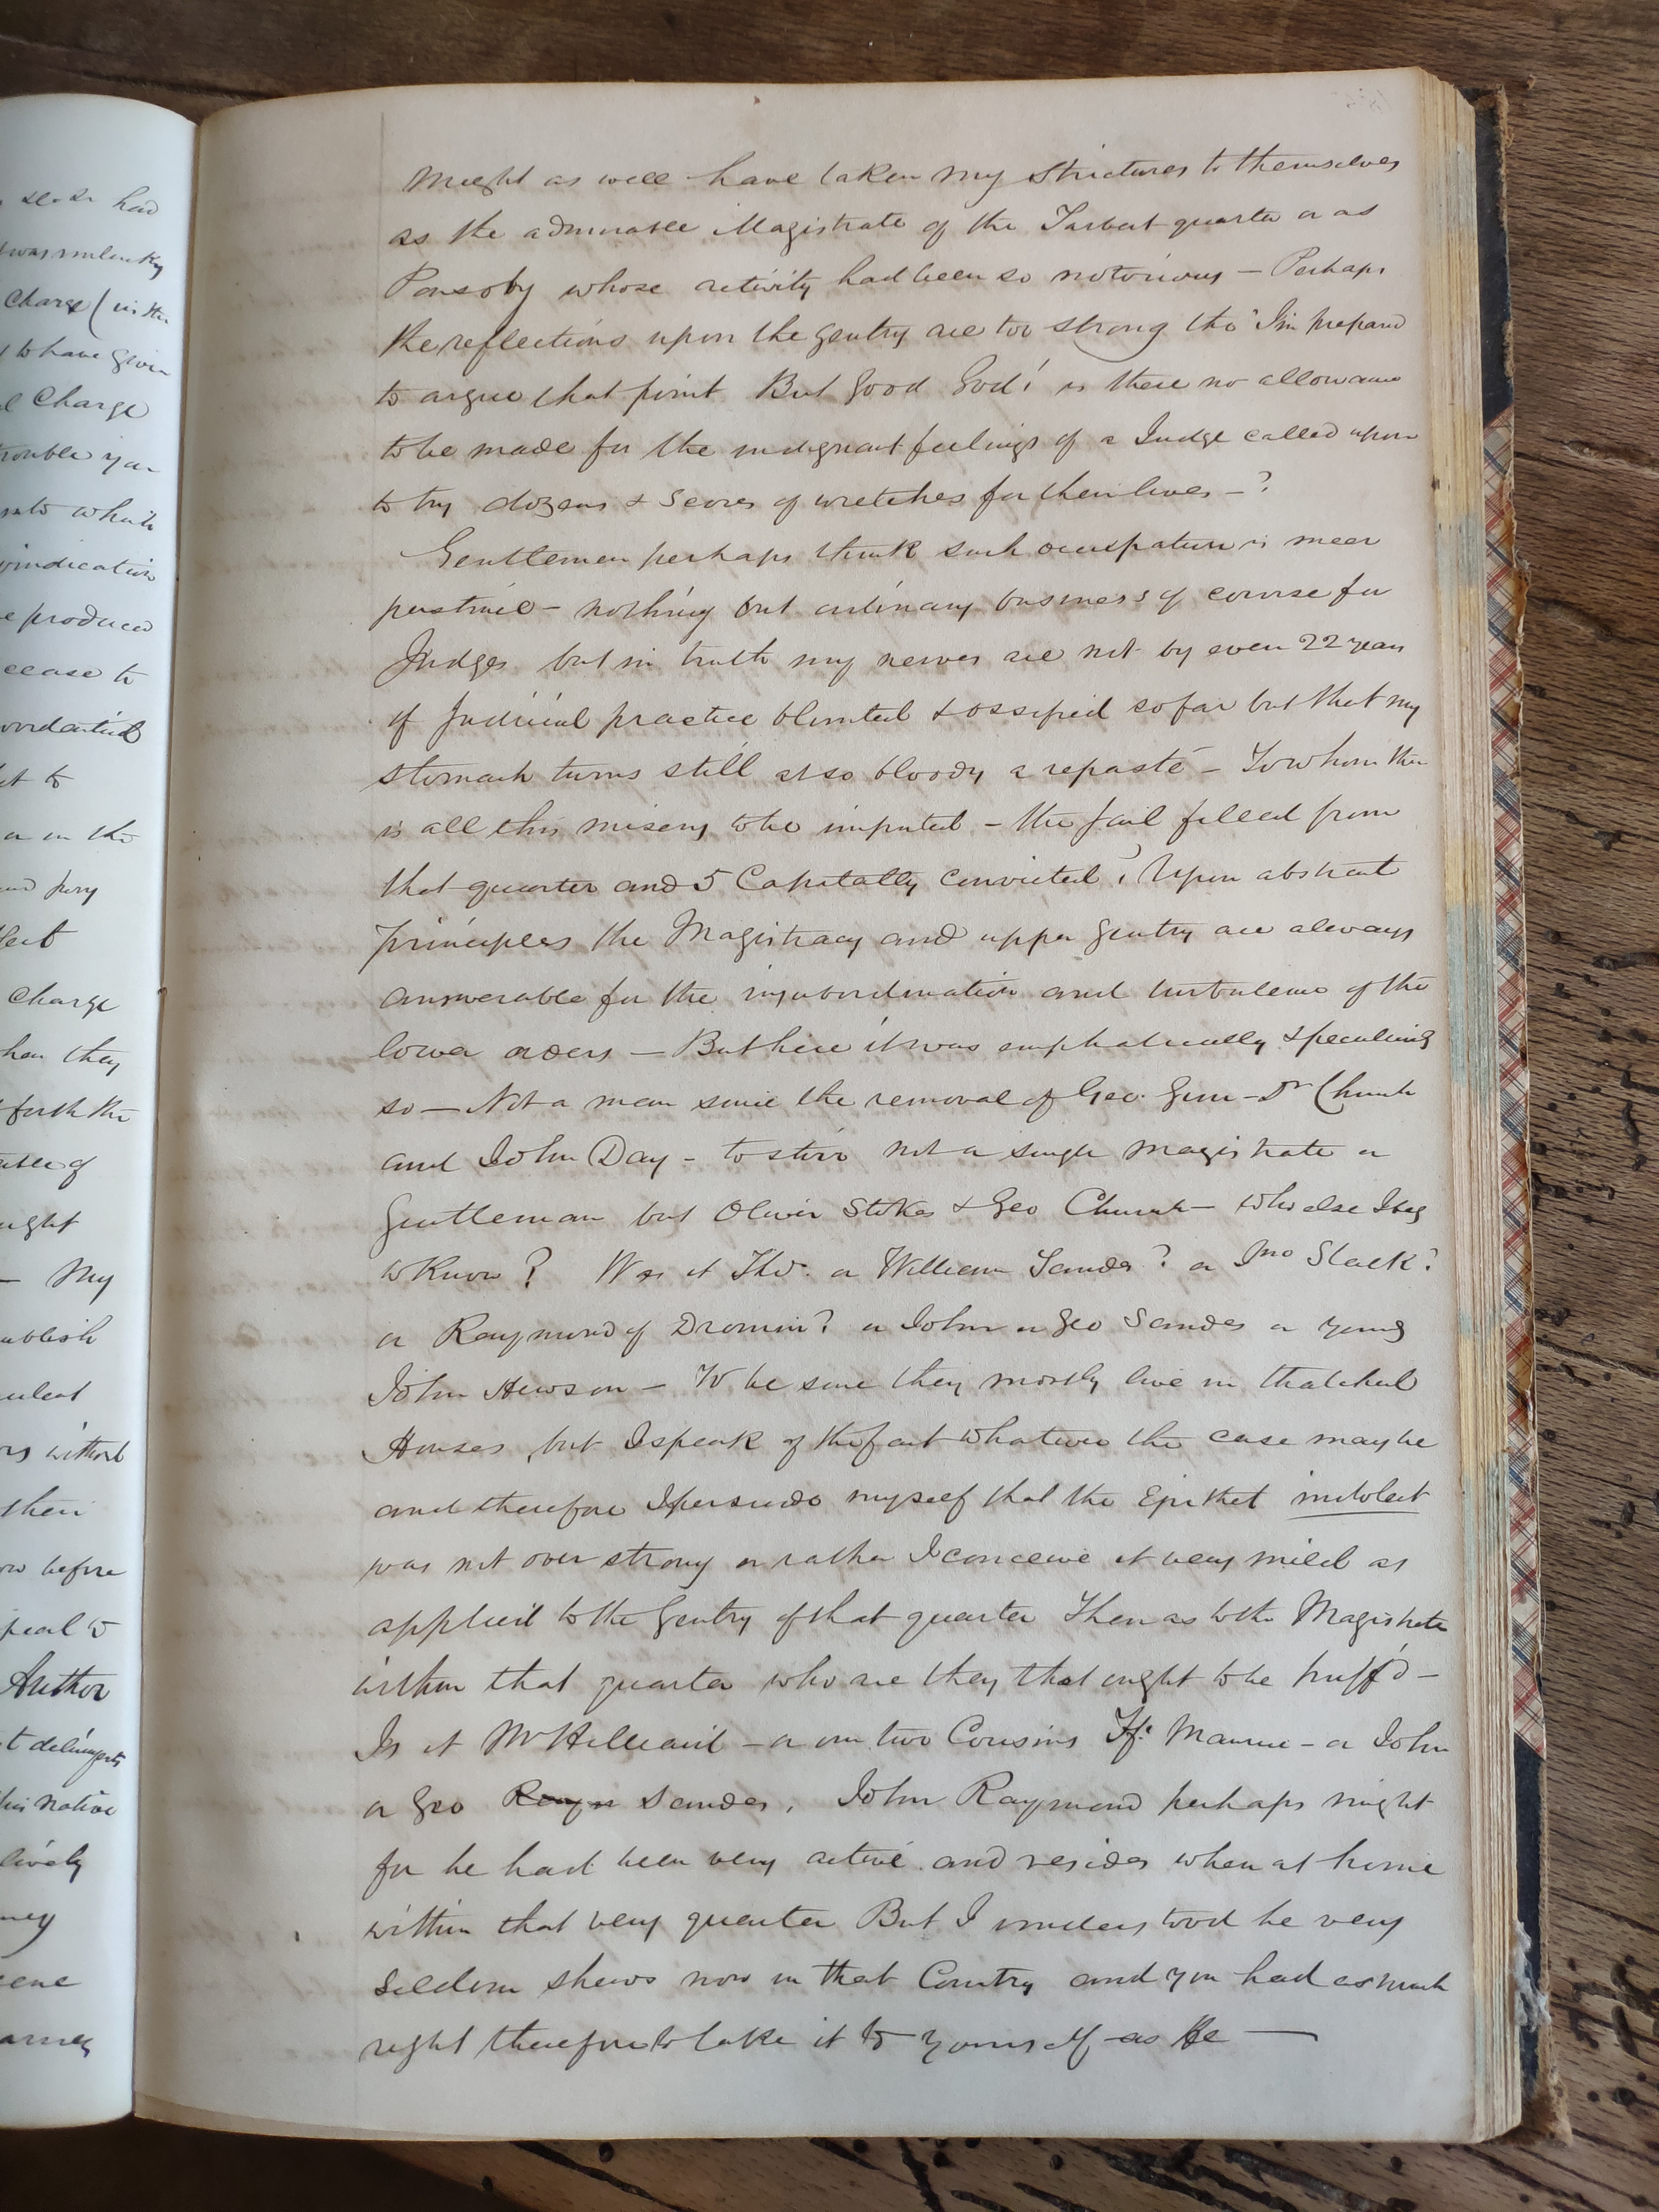 had
was
Charge (in the
to have given
Charge
trouble you
into which
vindication
produced
cease to
let to
or in the
and jury
Charge
when they
forth the
ought
— My
publish
without
their
before
Author
delinquents
his native
lively
Might as well have taken my Strictures to themselves
as the admirable Magistrate of the Tarbert quarter or as
Ponsoby whose activity had been so notorious — Perhaps
the reflections upon the gentry are too strong tho' I'm prepard
to argue that point But Good God! is there no allowance
to be made for the indignant feelings of a Judge called upon
to try dozens & Scores of wretches for their lives — ?
Gentlemen perhaps think such occupation is meer
pastime — nothing but ordinary business of course for
Judges but in truth my nerves are not by even 22 years
of Judicial practice blunted & ossified so far but that my
stomach turns still at so bloody a repaste — To whom then
is all this misery to be imputed — the Jail filled from
that quarter and 5 Capitally convicted? Upon abstract
principles the Magistracy and upper gentry are always
answerable for the insubordination and turbulence of the
lower orders — But here it was emphatically & peculiarly
so — Not a man since the removal of Geo. Gun — Dr Church
and John Day — to stir not a single magistrate or
Gentleman but Oliver Stokes & Geo Church — who else I beg
to Know? Was it Tho. or William Sandes? or Jno Slack?
or Raymond of Dromin? or John or Geo Sandes or young
John Hewson — To be sure they mostly live in thatched
Houses, but I speak of the fact whatever the case may be
and therefore I persuade myself that the Epithet indolent
was not over strong or rather I conceive it very mild as
applied to the Gentry of that quarter Then as to the Magistrate
within that quarter who are they that ought to be huff'd —
Is it Mr Hilliard — or our two Cousins Fz: Maurice — or John
or Geo Sandes, John Raymond perhaps might
for he had been very active and resides when at home
within that very quarter But I understood he very
seldom shews now in that Country and you had as much
right therefore to take it to yourself as He —